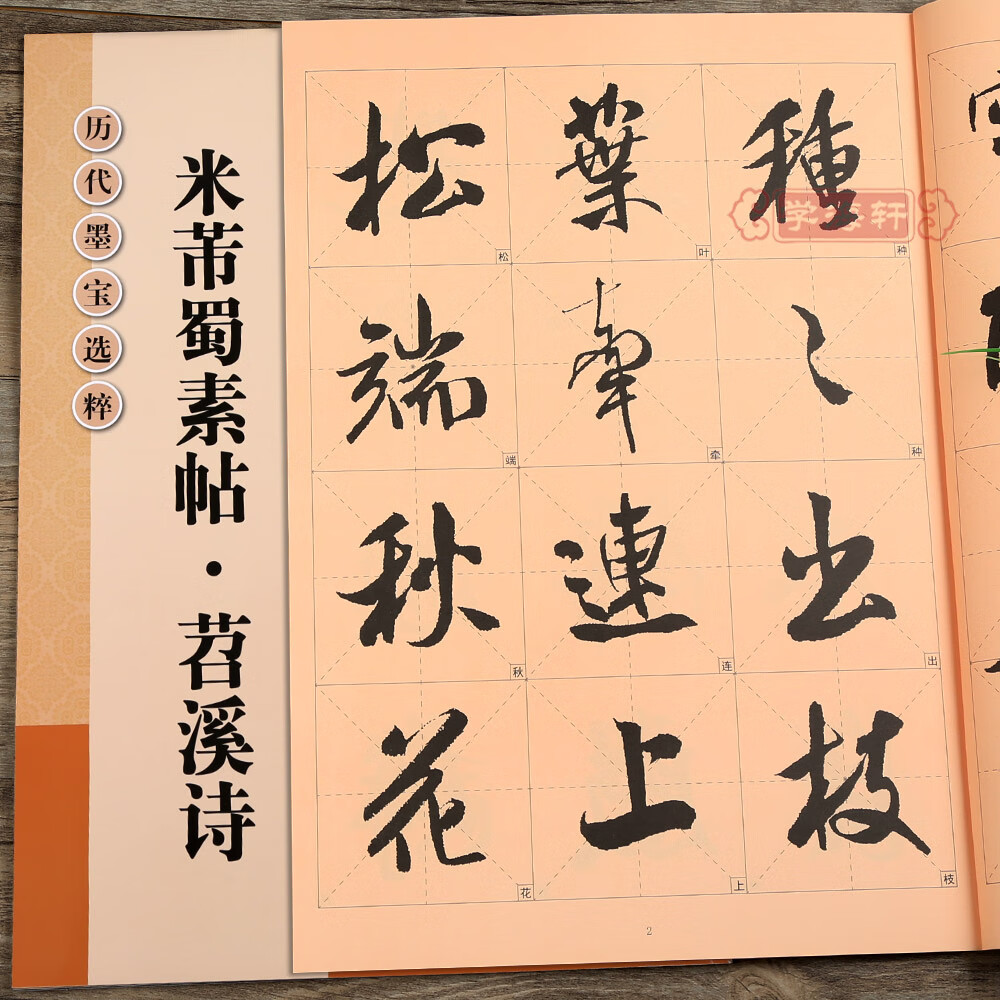 历代墨宝选粹
米芾蜀素帖·苕溪诗
種〻出枝
种 种 出 枝
葉牽連上
叶 牵 连 上
松端秋花
松 端 秋 花
2
学海轩